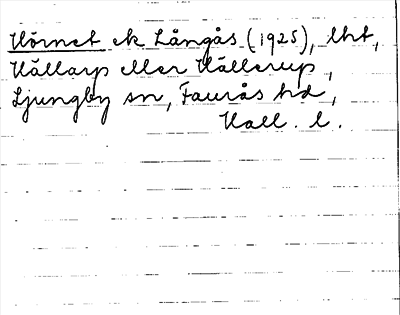 Hörnet el Långås (1925), lht,
Källarp eller Källerup,
Ljungby sn, Faurås hd,
Hall. l.